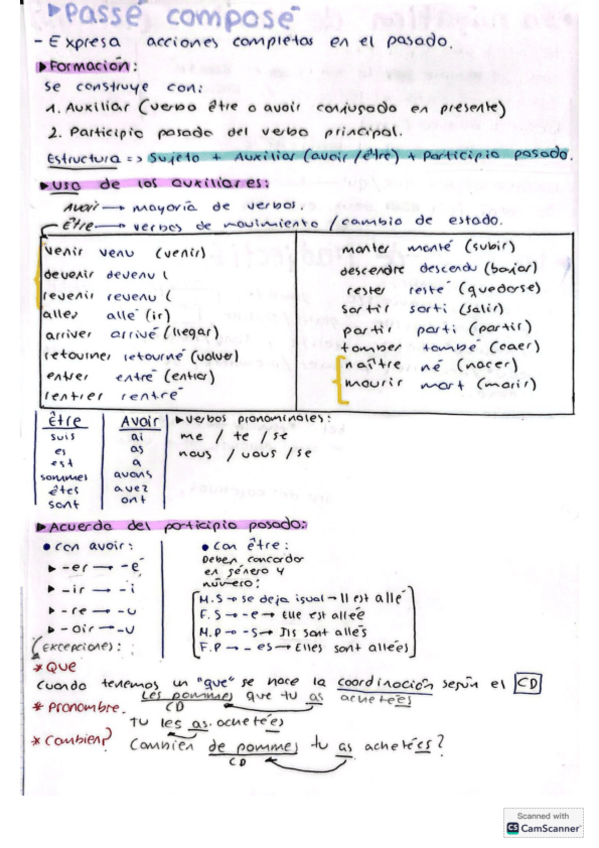 ▸Passé composé
- Expresa acciones completas en el pasado.
▸Formación:
Se construye con:
1. Auxiliar (verbo être o avoir conjugado en presente)
2. Participio pasado del verbo principal.
Estructura => Sujeto + Auxiliar (avoir/être) + Participio pasado.
▸Uso de los auxiliares:
Avoir → mayoría de verbos.
Être → verbos de movimiento / cambio de estado.
venir venu (venir)
devenir devenu (
revenir revenu (
aller allé (ir)
arriver arrivé (llegar)
retourner retourné (volver)
entrer entré (entrar)
rentrer rentré
monter monté (subir)
descendre descendu (bajar)
rester resté (quedarse)
sortir sorti (salir)
partir parti (partir)
tomber tombé (caer)
naître né (nacer)
mourir mort (morir)
Être
suis
es
est
sommes
êtes
sont
Avoir
ai
as
a
avons
avez
ont
▸verbos pronominales:
me / te / se
nous / vous / se
▸Acuerdo del participio pasado:
• con avoir:
▸ -er → -é
▸ -ir → -i
▸ -re → -u
▸ -oir → -u
(Excepciones):
• con être:
Deben concordar
en género y
número:
M.S → se deja igual → Il est allé
F.S → -e → Elle est allée
M.P → -s → Ils sont allés
F.P → -es → Elles sont allées
* Que
Cuando tenemos un "que" se hace la coordinación según el CD
Les pommes que tu as achetées
CD
* Pronombre.
Tu les as achetées
* Combien?
Combien de pommes tu as achetées?
CD
Scanned with
CS CamScanner